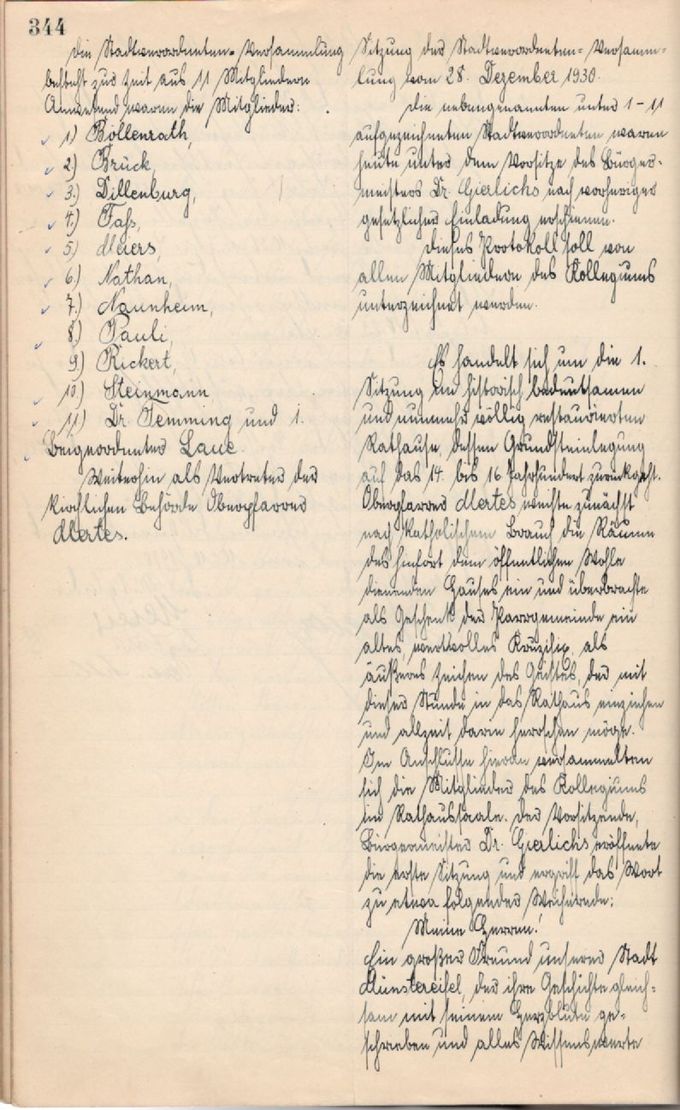 344
Die Stadtverordneten-Versammlung
besteht zur Zeit aus 11 Mitgliedern
Anwesend waren die Mitglieder:
1) Böllenrath,
2) Brück,
3.) Dillenburg,
4.) Faß,
5) Meiers,
6.) Nathan,
7.) Naunheim,
8.) Pauli,
9) Rickert,
10.) Steinmann
11.) Dr. Temming und 1.
Beigeordneter Laue.
Weiterhin als Vertreter der
kirchlichen Behörde Oberpfarrer
Mertes.
Sitzung der Stadtverordneten-Versamm-
lung vom 28. Dezember 1930.
Die nebengenannten unter 1-11
aufgezeichneten Stadtverordneten waren
heute unter dem Vorsitze des Bürger-
meisters Dr. Gierlichs nach vorheriger
gesetzlicher Einladung erschienen.
Dieses Protokoll soll von
allen Mitgliedern des Kollegiums
unterzeichnet werden.
Es handelt sich um die 1.
Sitzung im historisch bedeutsamen
und nunmehr völlig restaurierten
Rathause, dessen Grundsteinlegung
auf das 14. bis 16 Jahrhundert zurückgeht.
Oberpfarrer Mertes weihte zunächst
nach katholischem Brauch die Räume
des hinfort dem öffentlichen Wohle
dienenden Hauses ein und überbrachte
als Geschenk der Pfarrgemeinde ein
altes, wertvolles Kruzifix, als
äußeres Zeichen des Geistes, der mit
dieser Stunde in das Rathaus einziehen
und allzeit darin herrschen möge.
Im Anschlusse hieran versammelten
sich die Mitglieder des Kollegiums
im Rathaussaale. Der Vorsitzende,
Bürgermeister Dr. Gierlichs eröffnete
die erste Sitzung und ergriff das Wort
zu etwa folgender Weiherede:
Meine Herren!
Ein großer Freund unserer Stadt
Münstereifel, der ihre Geschichte gleich-
sam mit seinem Herzblute ge-
schrieben und alles Wissenswerte